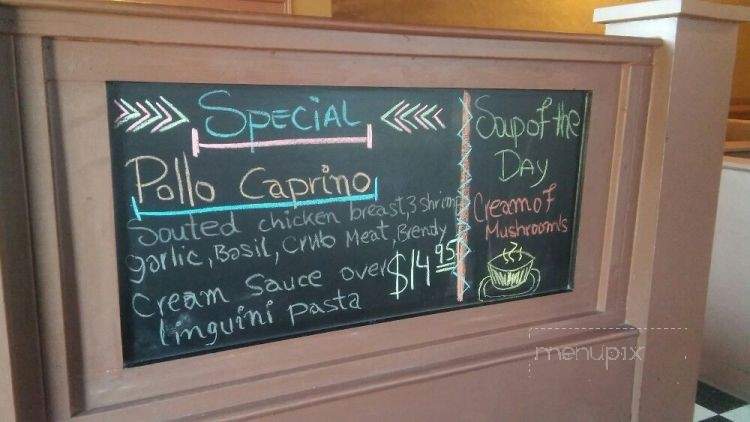 SPECIAL
Pollo Caprino
Souted chicken breast, 3 shrimp
garlic, Bosil, Crub Meat, Brendy
Cream Sauce over
linguini pasta
$14.95
Soup of the
DAY
Cream of
Mushroom's
menupix